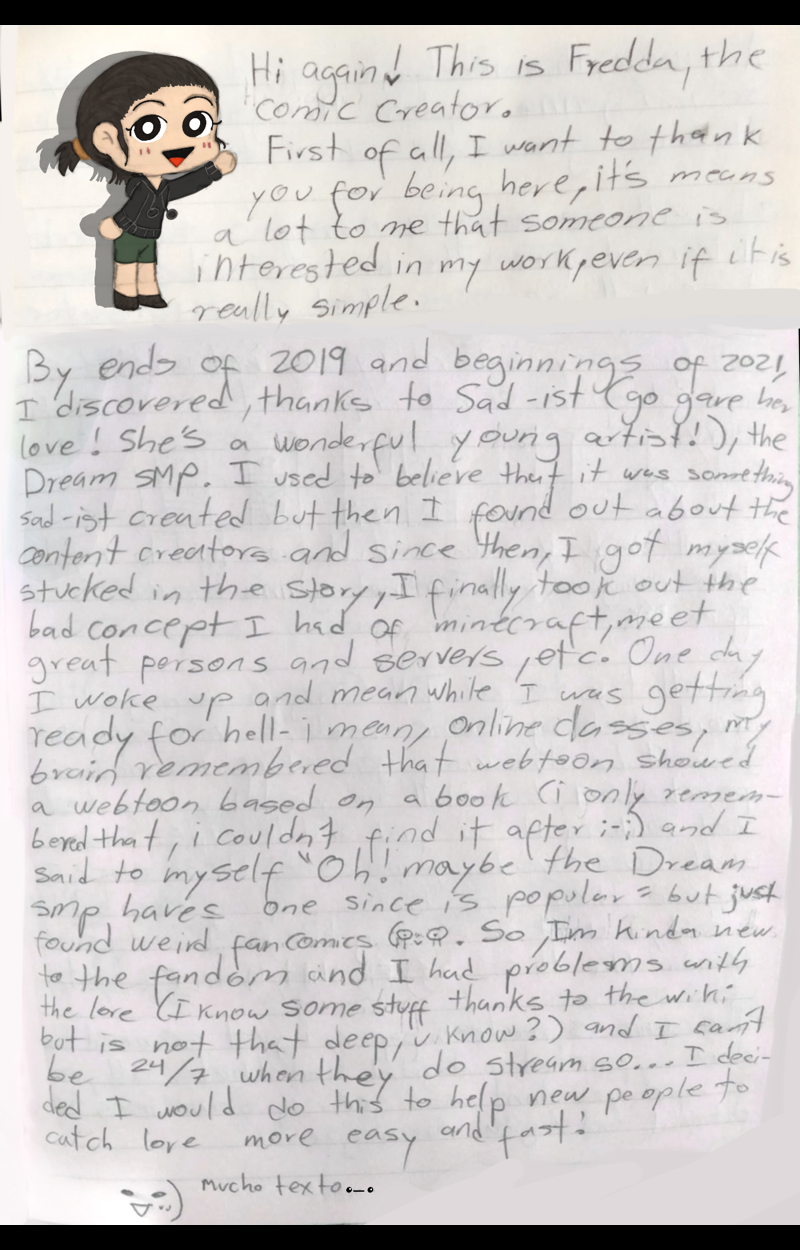 Hi again! This is Fredda, the
comic creator.
First of all, I want to thank
you for being here, it's means
a lot to me that someone is
interested in my work, even if it is
really simple.
By ends of 2019 and beginnings of 2021,
I discovered, thanks to Sad-ist (go gave her
love! She's a wonderful young artist!), the
Dream SMP. I used to believe that it was something
sad-ist created but then I found out about the
content creators and since then, I got myself
stucked in the story, I finally took out the
bad concept I had of minecraft, meet
great persons and servers, etc. One day
I woke up and meanwhile I was getting
ready for hell- i mean, online classes, my
brain remembered that webtoon showed
a webtoon based on a book (i only remem-
bered that, i couldn't find it after ;-;) and I
said to myself "Oh! maybe the Dream
smp haves one since is popular" but just
found weird fancomics. So, Im kinda new
to the fandom and I had problems with
the lore (I know some stuff thanks to the wiki
but is not that deep, u know?) and I can't
be 24/7 when they do stream so... I deci-
ded I would do this to help new people to
catch lore more easy and fast!
Mucho texto •_•